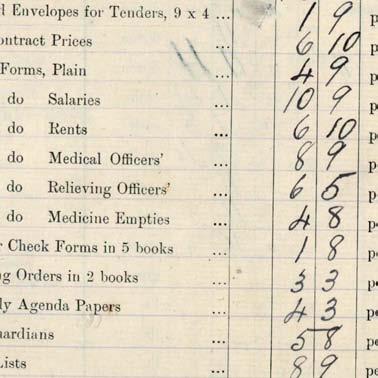 Envelopes for Tenders, 9 x 4 ... 1 9
Contract Prices ... 6 10
Forms, Plain ... 4 9
do Salaries ... 10 9
do Rents ... 6 10
do Medical Officers' ... 8 9
do Relieving Officers' ... 6 5
do Medicine Empties ... 4 8
Check Forms in 5 books ... 1 8
Orders in 2 books ... 3 3
Agenda Papers ... 4 3
Guardians ... 5 8
Lists ... 8 9